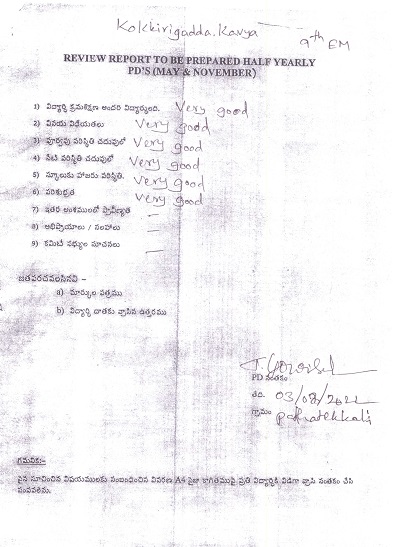 Kokkirigadda. Kavya
9th EM
REVIEW REPORT TO BE PREPARED HALF YEARLY
PD'S (MAY & NOVEMBER)
1) విద్యార్థి క్రమశిక్షణ అందరి విద్యార్థులది. Very good
2) వినయ విధేయతలు Very good
3) పూర్వపు పరిస్థితి చదువులో Very good
4) నేటి పరిస్థితి చదువులో Very good
5) స్కూలుకు హాజరు పరిస్థితి. Very good
6) పరిశుభ్రత Very good
7) ఇతర అంశములలో ప్రావీణ్యత —
8) అభిప్రాయాలు / సలహాలు —
9) కమిటీ సభ్యుల సూచనలు —
జతపరచవలసినవి –
a) మార్కుల పత్రము
b) విద్యార్థి దాతకు వ్రాసిన ఉత్తరము
PD సంతకం
తేది. 03/08/2022
గ్రామం
గమనిక:-
పైన సూచించిన విషయములకు సంబంధించిన వివరణ A4 సైజు కాగితముపై ప్రతి విద్యార్థికి విడిగా వ్రాసి సంతకం చేసి
పంపవలెను.